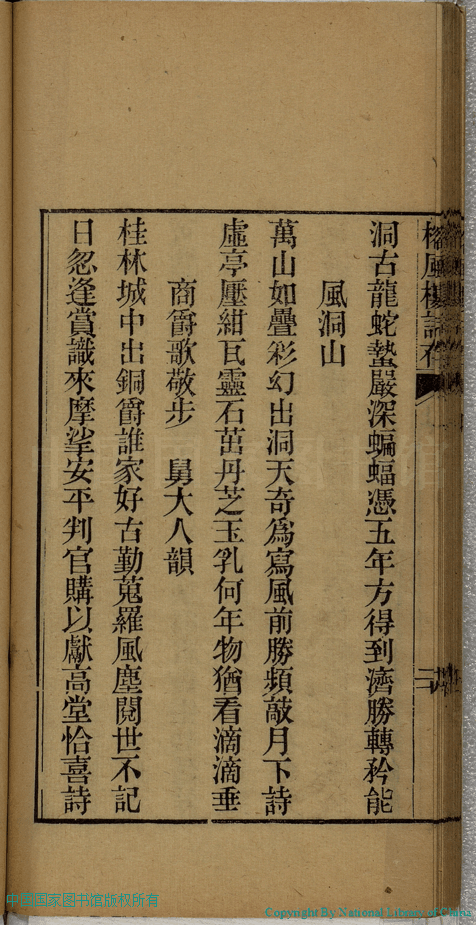 洞古龍蛇蟄嚴深蝙蝠憑五年方得到濟勝轉矜能
風洞山
萬山如疊彩幻出洞天奇爲寫風前勝頻敲月下詩
虛亭壓紺瓦靈石茁丹芝玉乳何年物猶看滴滴垂
商爵歌敬步　舅大人韻
桂林城中出銅爵誰家好古勤蒐羅風塵閱世不記
日忽逢賞識來摩挲安平判官購以獻高堂恰喜詩
中国国家图书馆版权所有
Copyright By National Library of China